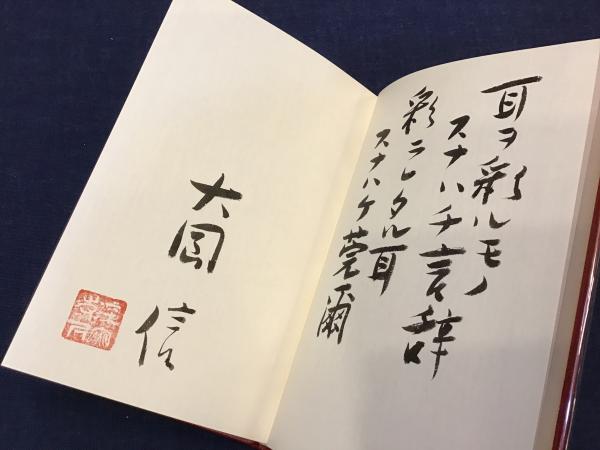 耳ヲ彩ルモノ
スナハチ言辞
彩ラレタル耳
スナハチ莞爾
大岡
信